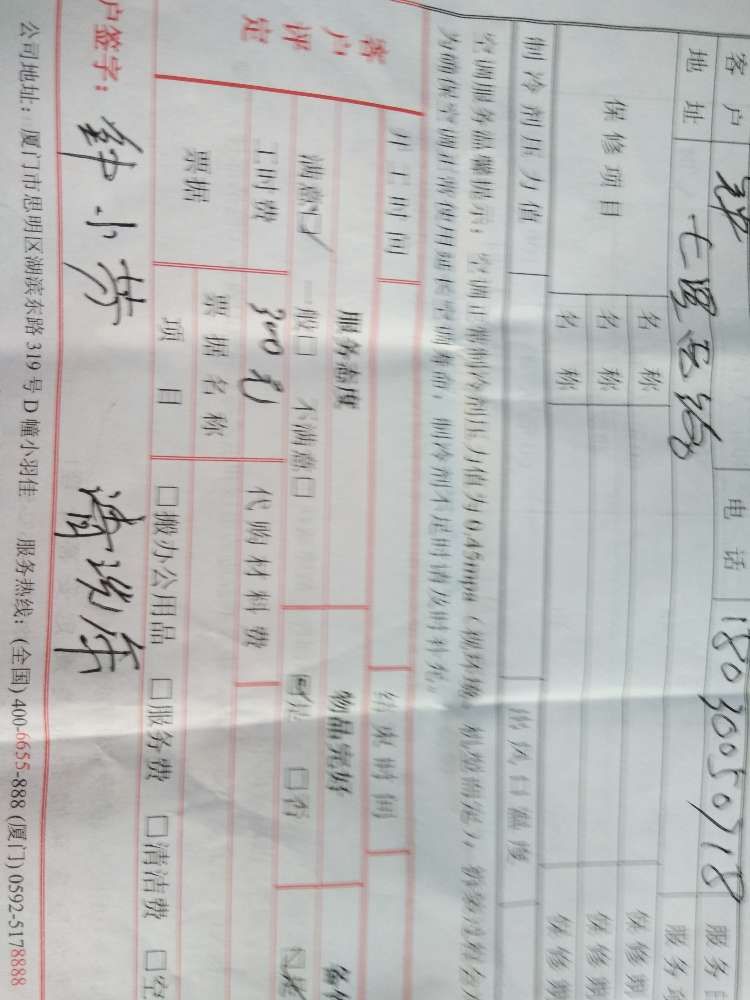 客户 电话 18030050718 服务
地址 七星西路 服务
保修项目 名称 保修期
名称 保修期
名称 保修期
制冷剂压力值 出风口温度
空调服务温馨提示：空调正常制冷剂压力值为0.45mpa（视环境、机型而定），
为确保空调正常使用延长空调寿命，制冷剂不足时请及时补充。
开工时间 结束时间
客户评定 服务态度 物品完好
满意☑ 一般□ 不满意□ ☑是 □否
工时费 300元 代购材料费
票据 票据名称
项目 □搬办公用品 □服务费 □清洁费 □空
户签字：钟小芬
公司地址：厦门市思明区湖滨东路319号D幢小羽佳 服务热线：(全国)400-6655-888 (厦门)0592-5178888